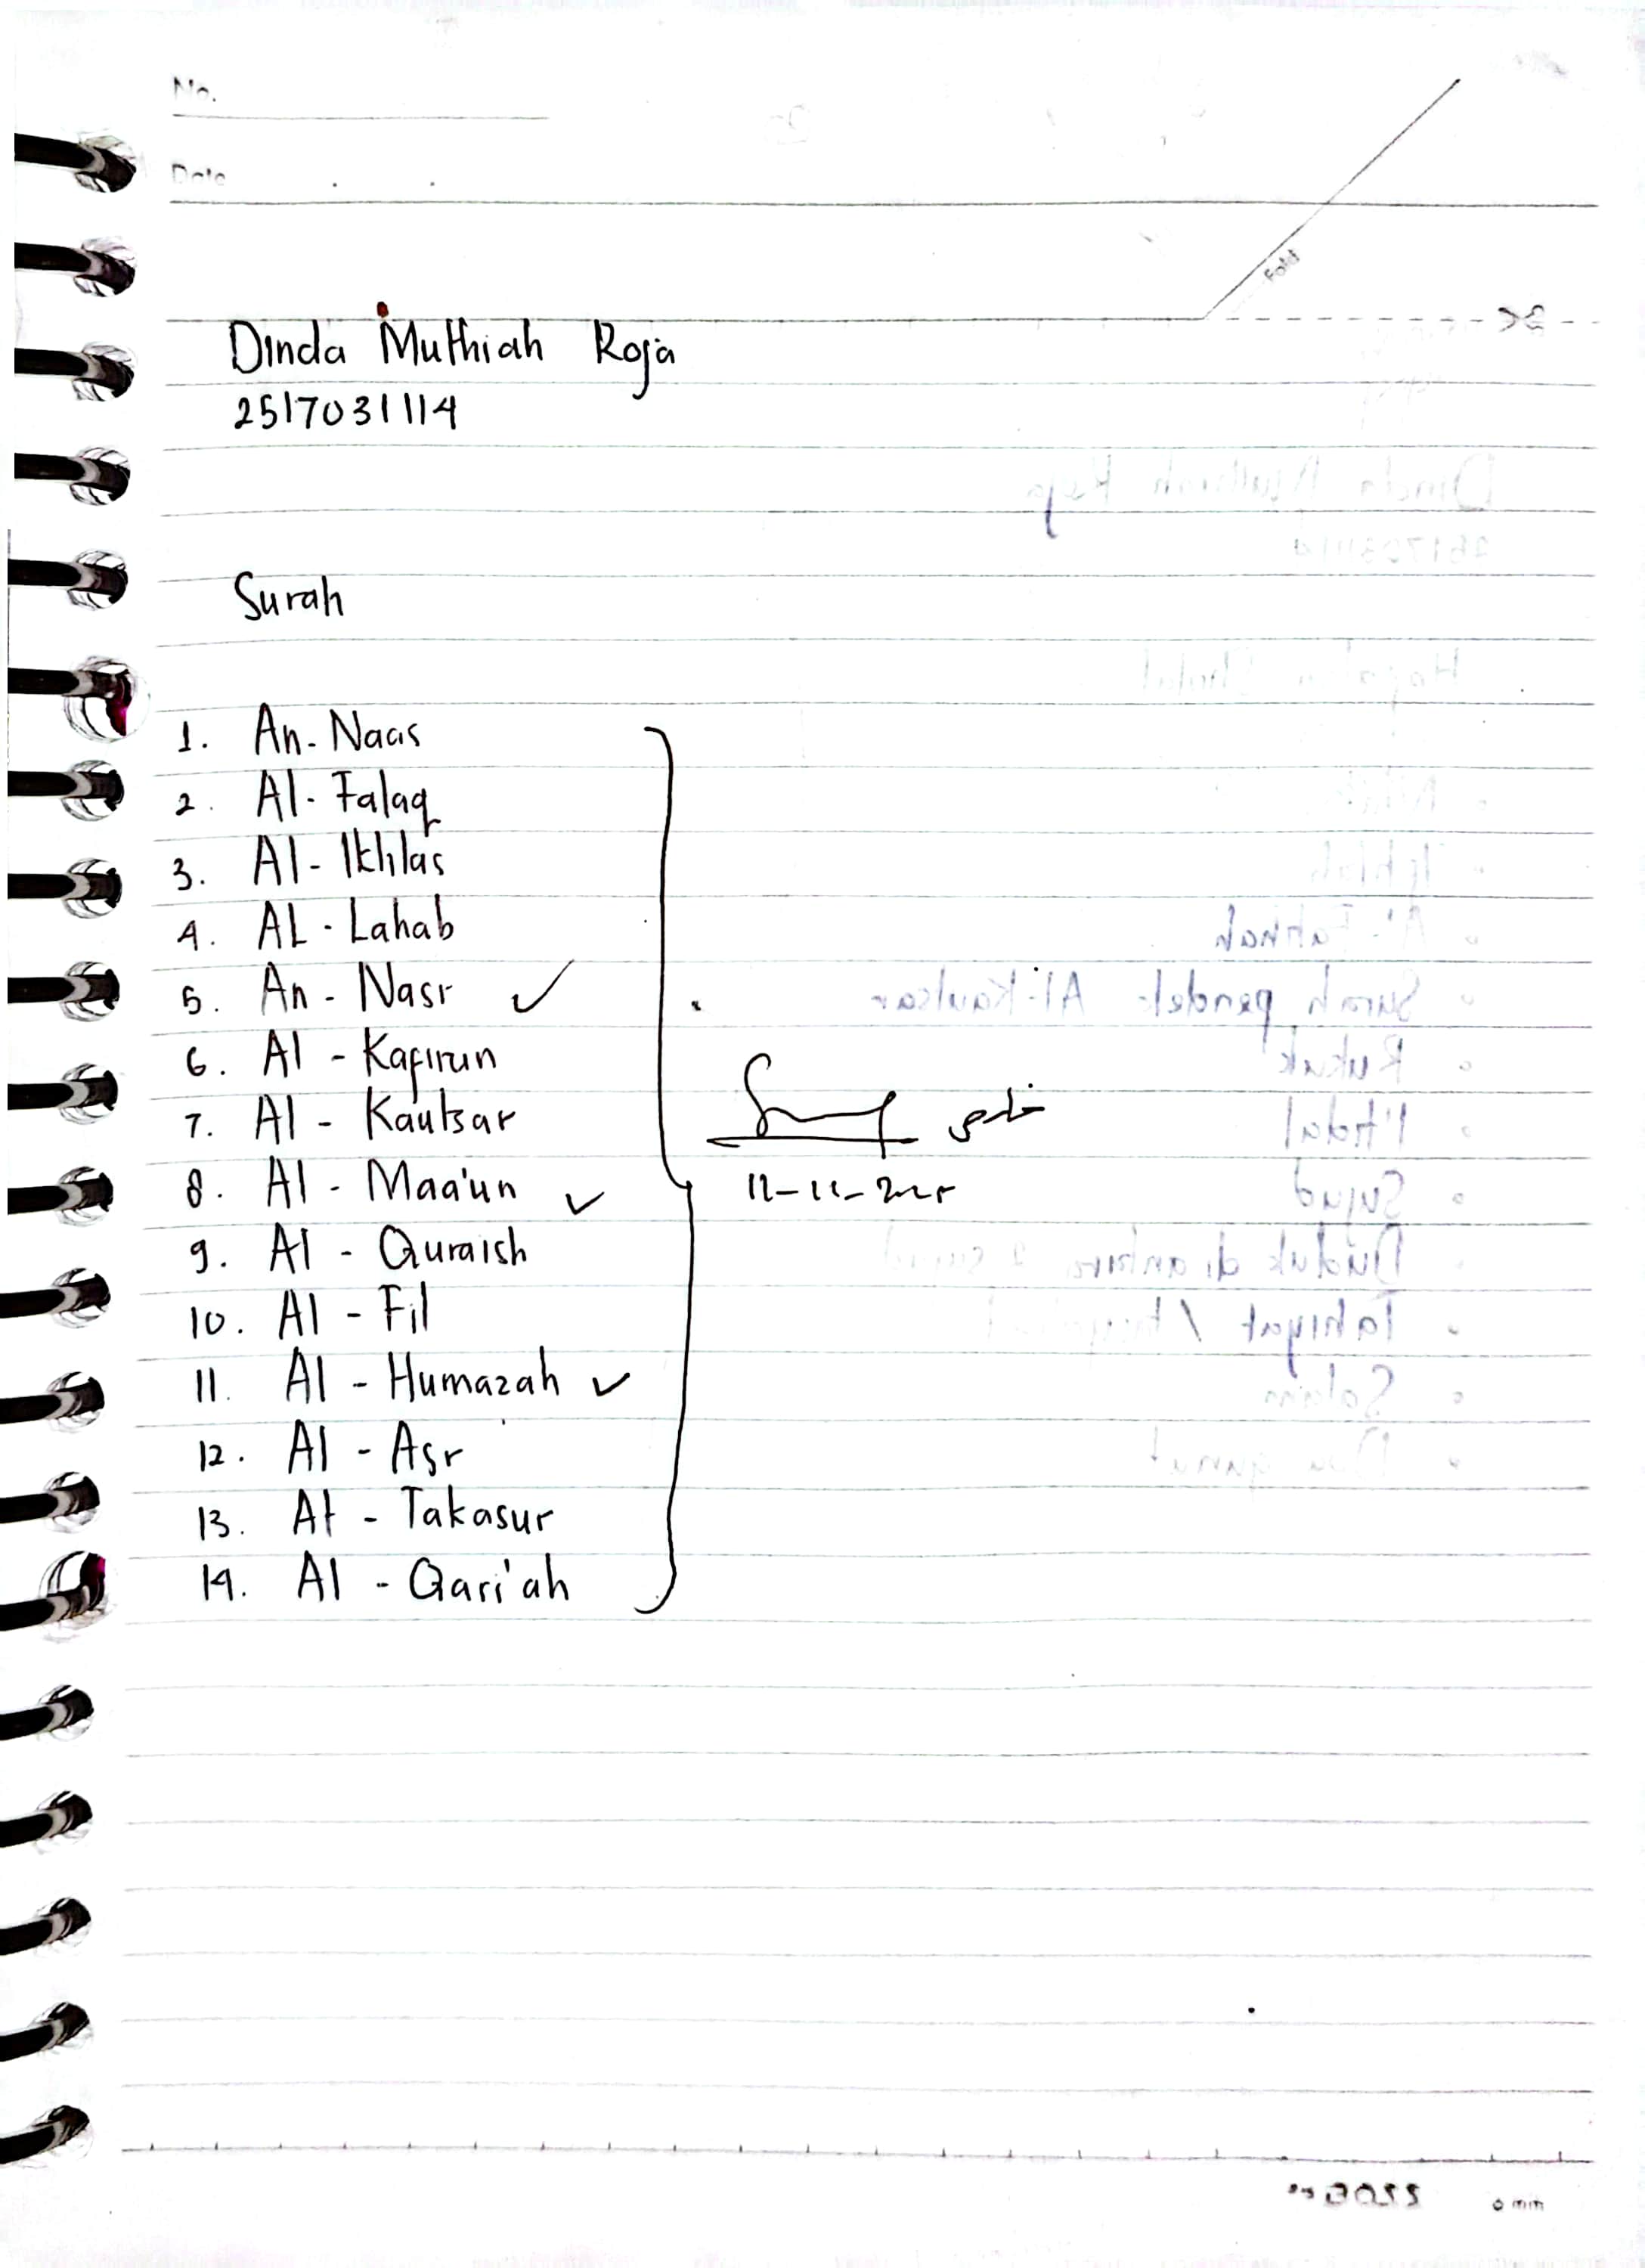 No.
Date
Fold
Dinda Muthiah Roja
2517031114
Surah
1. An-Naas
2. Al-Falaq
3. Al-Ikhlas
4. AL-Lahab
5. An-Nasr ✓
6. Al-Kafirun
7. Al-Kautsar
8. Al-Maa'un ✓
9. Al-Quraish
10. Al-Fil
11. Al-Humazah ✓
12. Al-Asr
13. At-Takasur
14. Al-Qari'ah
11-11-2025